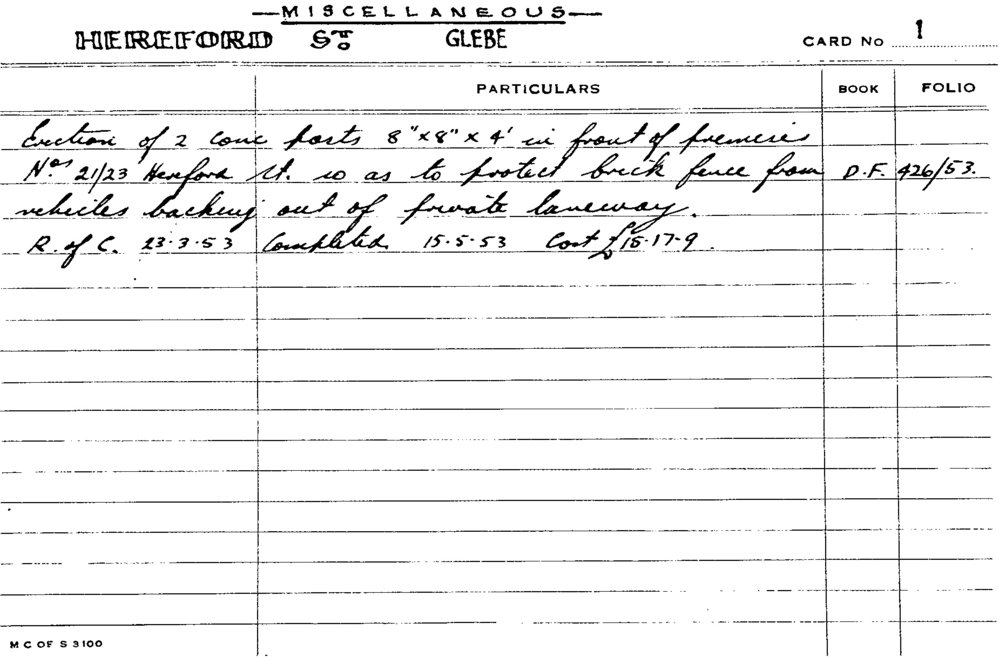 MISCELLANEOUS
HEREFORD ST. GLEBE CARD No 1
PARTICULARS BOOK FOLIO
Erection of 2 conc posts 8" x 8" x 4' in front of premises
Nos 21/23 Hereford St. so as to protect brick fence from D.F. 426/53.
vehicles backing out of private laneway.
R. of C. 23.3.53 Completed 15.5.53 Cost £15.17.9.
M C OF S 3100